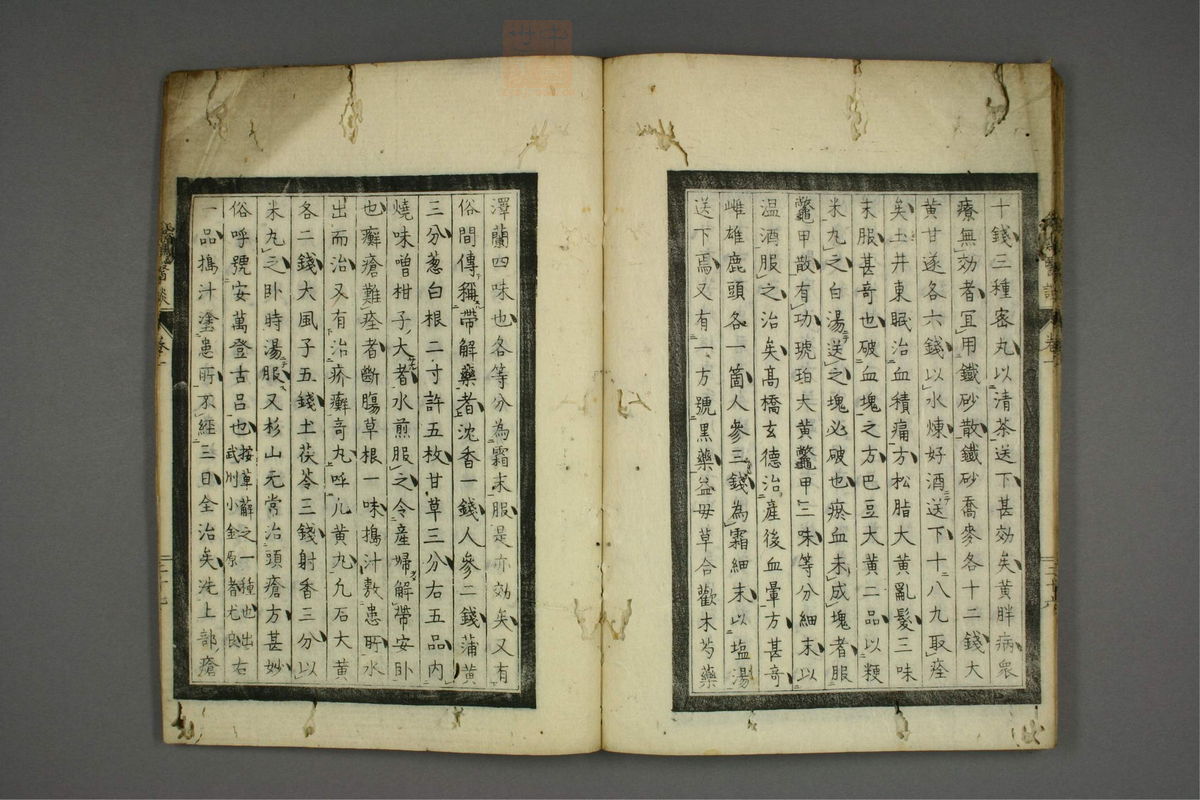 十錢三種密丸以清茶送下甚効矣黄胖病衆
療無効者冝用鐵砂散鐵砂喬麥各十二錢大
黄甘遂各六錢以水煉好酒送下十八九取痊
矣土井東眠治血積痛方松脂大黄亂髮三味
末服甚奇也破血塊之方巴豆大黄二品以粳
米丸之白湯送之塊必破也瘀血未成塊者服
鼈甲散有功琥珀大黄鼈甲三味等分細末以
温酒服之治矣髙橋玄德治産後血暈方甚奇
雌雄鹿頭各一箇人參三錢為霜細末以塩湯
送下焉又有一方號黒藥益毋草合歡木芍藥
澤蘭四味也各等分為霜末服是亦効矣又有
俗間傳稱帶解藥者沈香一錢人參二錢蒲黄
三分葱白根二寸許五枚甘草三分右五品内
燒味噌柑子大者水煎服之令産婦解帶安卧
也癬瘡難痊者斷膓草根一味搗汁敷患所水
出而治又有治疥癬竒丸呼九黄丸九石大黄
各二錢大風子五錢土茯苓三錢射香三分以
米丸之卧時湯服又杉山元常治頭瘡方甚妙
俗呼號安萬登古呂也按萆薢之一種也出武州小金原者尤良右
一品搗汁塗患所不經三日全治矣洗上部瘡
醫談 巻一